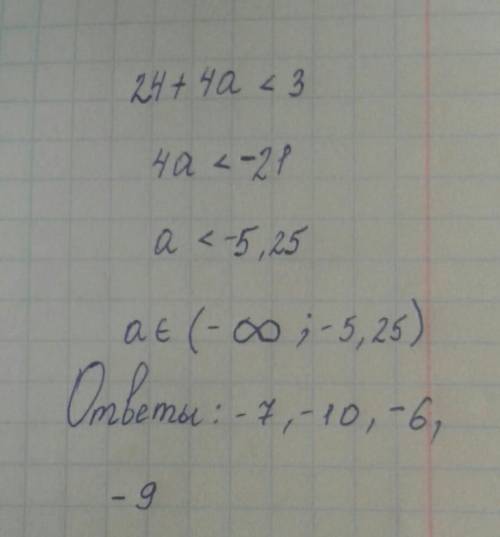 24 + 4a < 3
4a < -21
a < -5,25
a ∈ (-∞ ; -5,25)
Ответы: -7, -10, -6,
-9